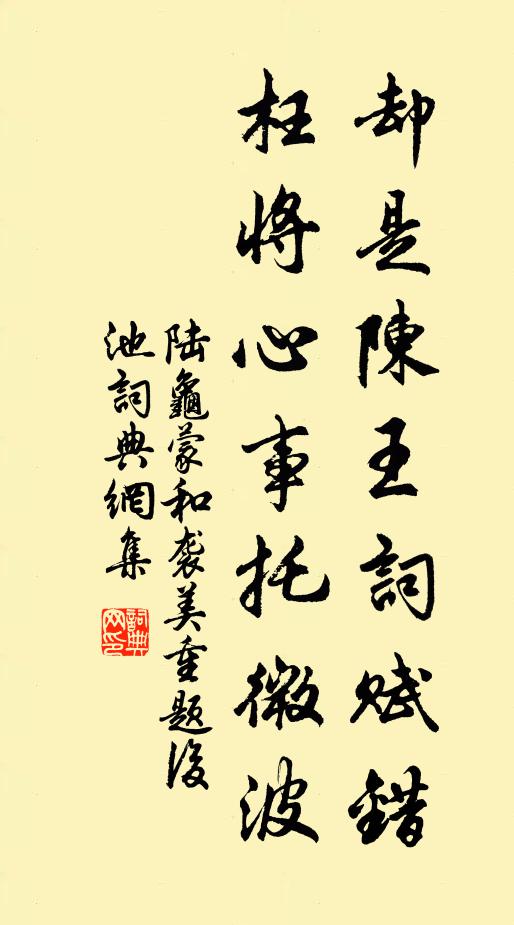 却是陳王詞賦錯
枉將心事托微波
陆龜蒙和袭美重题後
池詞典網集
詞典
网印